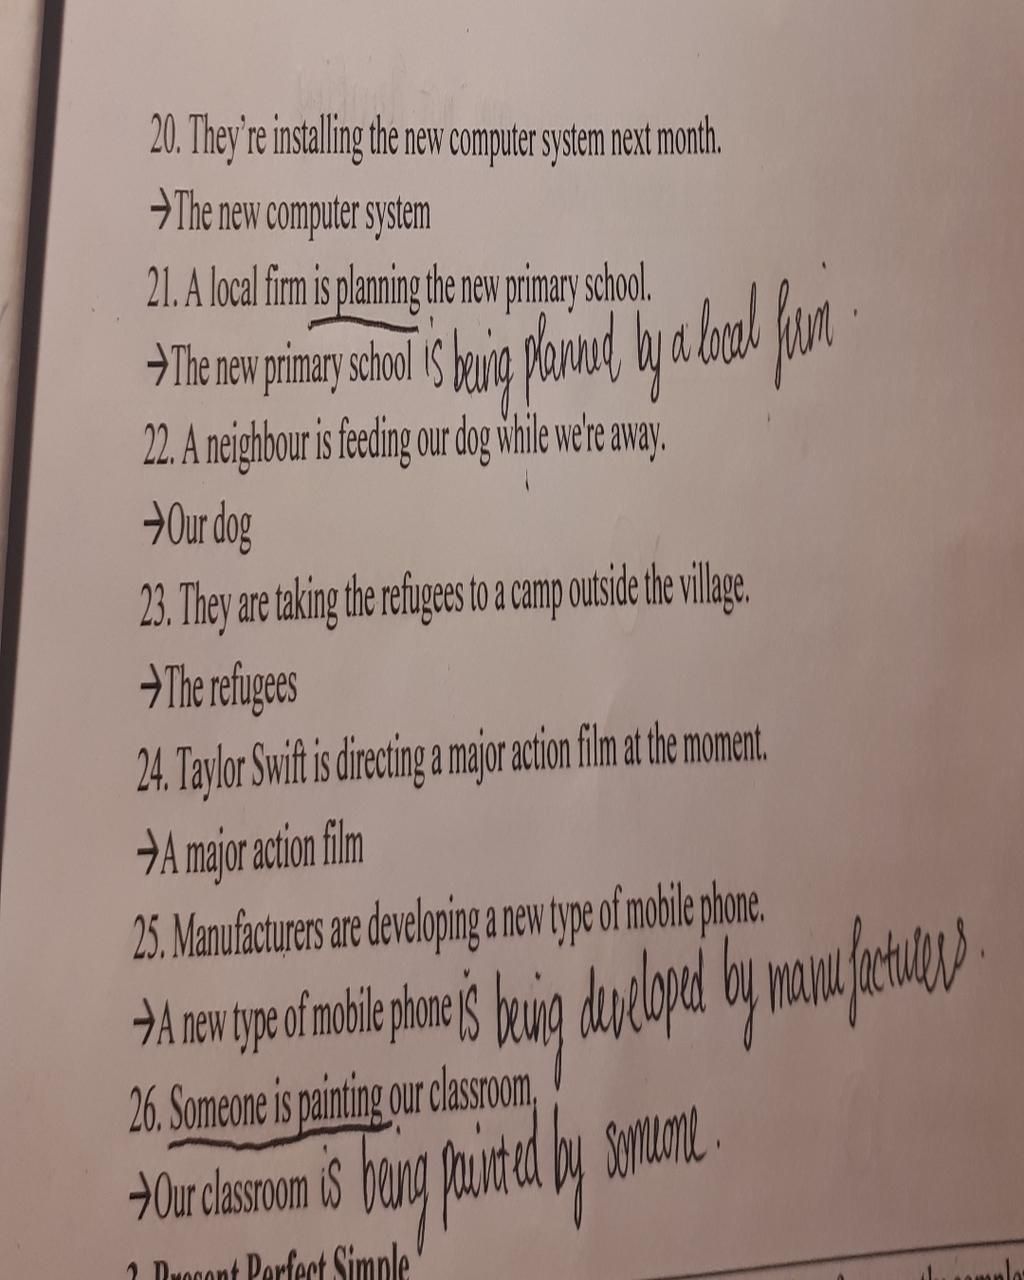 20. They're installing the new computer system next month.
→The new computer system
21. A local firm is planning the new primary school.
→The new primary school is being planned by a local firm.
22. A neighbour is feeding our dog while we're away.
→Our dog
23. They are taking the refugees to a camp outside the village.
→The refugees
24. Taylor Swift is directing a major action film at the moment.
→A major action film
25. Manufacturers are developing a new type of mobile phone.
→A new type of mobile phone is being developed by manufacturers.
26. Someone is painting our classroom.
→Our classroom is being painted by someone.
2. Present Perfect Simple